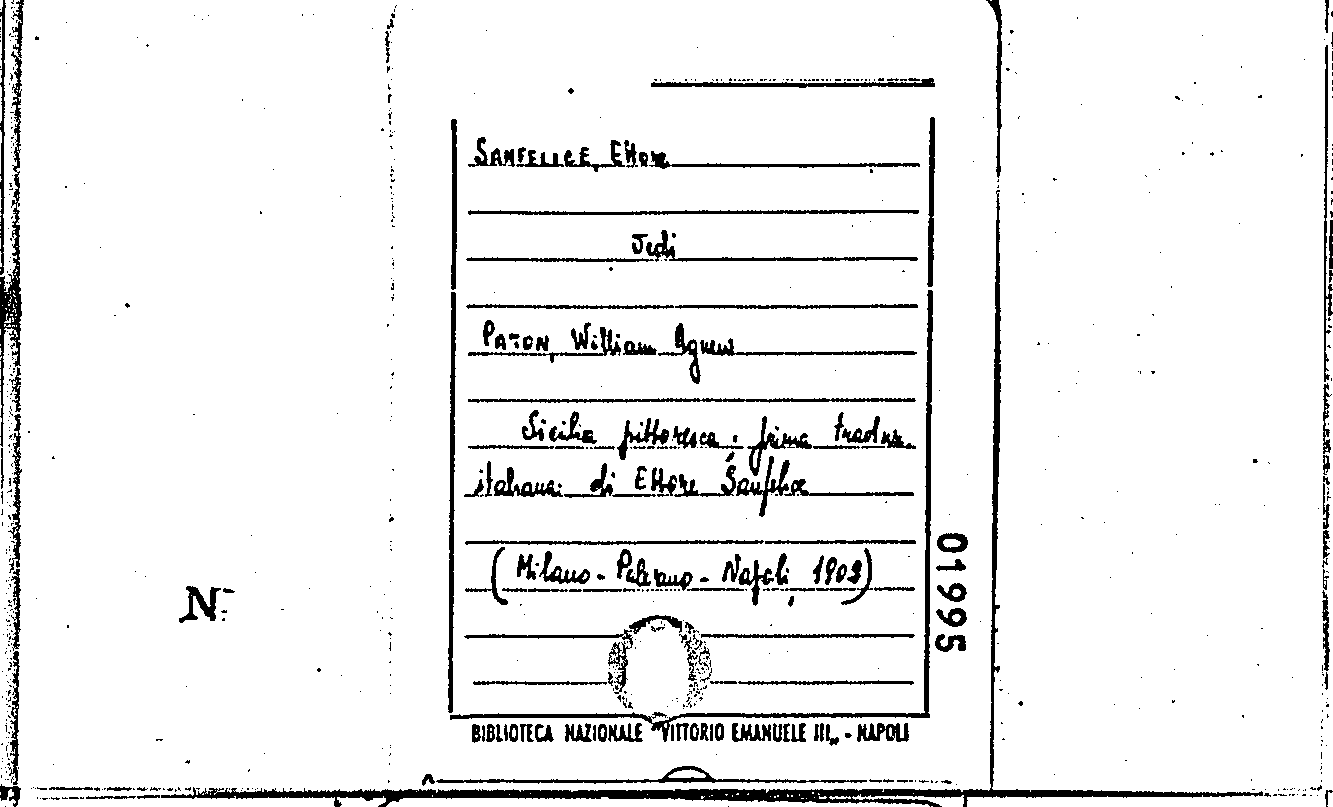 SANFELICE, Ettore
Vedi
PATON, William Agnew
Sicilia pittoresca; prima traduz.
italiana di Ettore Sanfelice
(Milano - Palermo - Napoli, 1902)
019995
N
BIBLIOTECA NAZIONALE "VITTORIO EMANUELE III„ - NAPOLI